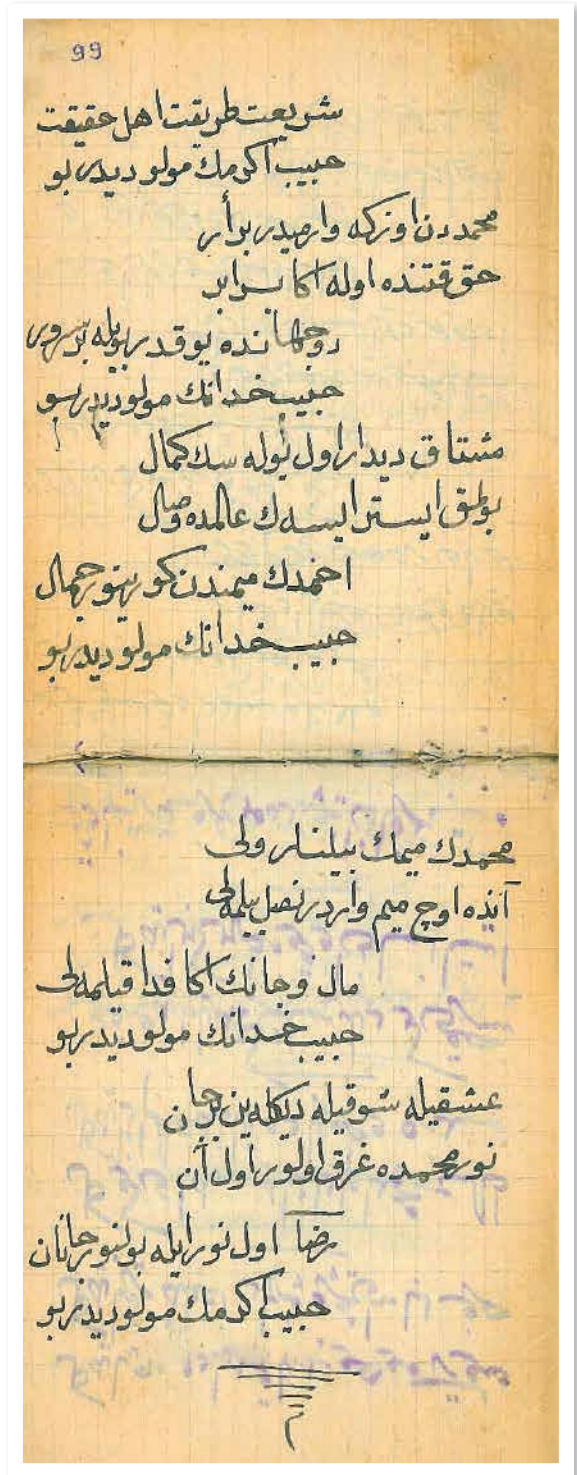 99
شریعت طریقت اهل حقیقت
حبیب اکرمك مولودیدر بو
محمددن اوزكه وارمیدر بر أر
حق قتنده اوله اکا برابر
دوجهانده یوقدر بویله بر سرور
حبیب خدانك مولودیدر بو
مشتاق دیدار اول بوله سك کمال
بولمق ایستر ایسه ك عالمده وصال
احمدك میمندن کورینور جمال
حبیب خدانك مولودیدر بو
محمدك میمك بیلنلر ولی
آنده اوچ میم واردر نصل بیلمه لی
مال و جانك اکا فدا قیلمه لی
حبیب خدانك مولودیدر بو
عشقیله شوقیله دیکله ین بر جان
نور محمده غرق اولور اول آن
رضا اول نور ایله بولنور جانان
حبیب اکرمك مولودیدر بو
م